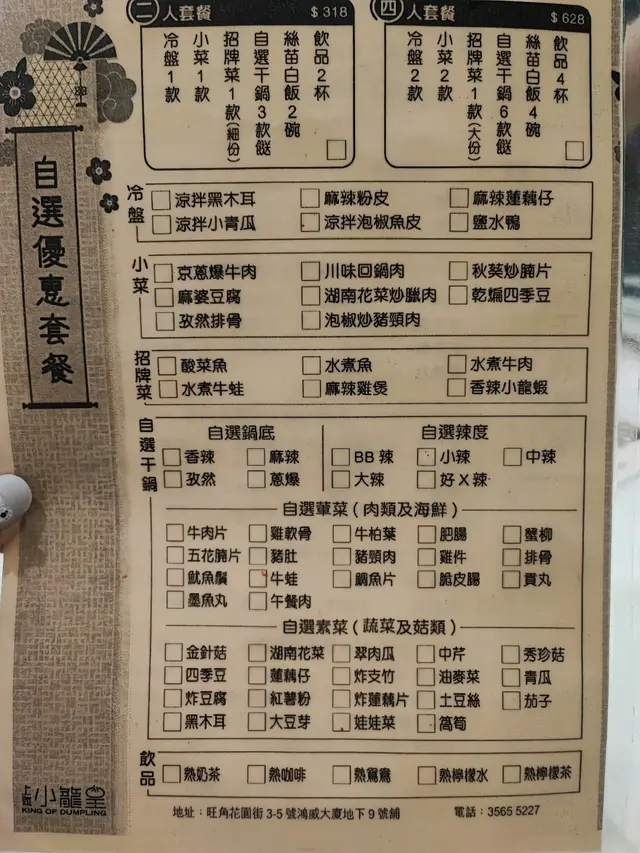 自選優惠套餐
二人套餐 $318
冷盤1款
小菜1款
招牌菜1款(細份)
自選干鍋3款餸
絲苗白飯2碗
飲品2杯
四人套餐 $628
冷盤2款
小菜2款
招牌菜1款(大份)
自選干鍋6款餸
絲苗白飯4碗
飲品4杯
冷盤
涼拌黑木耳 麻辣粉皮 麻辣蓮藕仔
涼拌小青瓜 涼拌泡椒魚皮 鹽水鴨
小菜
京蔥爆牛肉 川味回鍋肉 秋葵炒腩片
麻婆豆腐 湖南花菜炒臘肉 乾煸四季豆
孜然排骨 泡椒炒豬頸肉
招牌菜
酸菜魚 水煮魚 水煮牛肉
水煮牛蛙 麻辣雞煲 香辣小龍蝦
自選干鍋
自選鍋底 自選辣度
香辣 麻辣 BB辣 小辣 中辣
孜然 蔥爆 大辣 好X辣
自選葷菜(肉類及海鮮)
牛肉片 雞軟骨 牛柏葉 肥腸 蟹柳
五花腩片 豬肚 豬頸肉 雞件 排骨
魷魚鬚 牛蛙 鯛魚片 脆皮腸 貢丸
墨魚丸 午餐肉
自選素菜(蔬菜及菇類)
金針菇 湖南花菜 翠肉瓜 中芹 秀珍菇
四季豆 蓮藕仔 炸支竹 油麥菜 青瓜
炸豆腐 紅薯粉 炸蓮藕片 土豆絲 茄子
黑木耳 大豆芽 娃娃菜 萵筍
飲品
熱奶茶 熱咖啡 熱鴛鴦 熱檸檬水 熱檸檬茶
上海小龍皇
KING OF DUMPLING
地址：旺角花園街3-5號鴻威大廈地下9號舖 電話：3565 5227